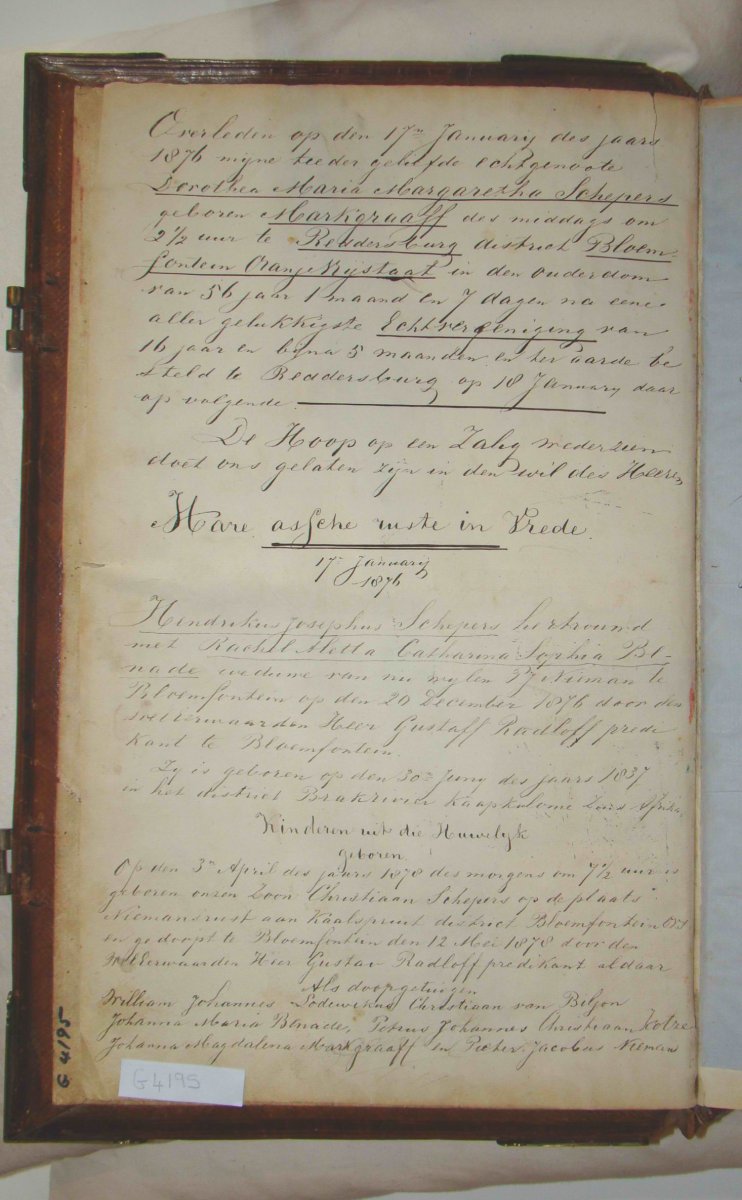 Overleden op den 17n January des jaars
1876 mijne teeder geliefde echtgenoote
Dorothea Maria Margaretha Schepers
geboren Markgraaff des middags om
2½ uur te Reddersburg district Bloem-
fontein Oranje Vrijstaat in den ouderdom
van 56 jaar 1 maand en 7 dagen na eene
aller gelukkigste Echtvereeniging van
16 jaar en byna 5 maanden en ter aarde be
steld te Reddersburg op 18 January daar
op volgende
De Hoop op een Zalig wederzien
doet ons gelaten zijn in den wil des Heeren
Hare assche ruste in Vrede.
17n January
1876
Hendrikus Josephus Schepers hertrouwd
met Rachel Aletta Catharina Sophia Be-
nade weduwe van nu wylen Nieman te
Bloemfontein op den 20 December 1876 door den
wel Eerwaarden Heer Gustaff Radloff predi
kant te Bloemfontein.
Zy is geboren op den 30n Juny des jaars 1837
in het district Brakrivier Kaapkolonie Zuid Afrika
Kinderen uit die Huwelyk
geboren
Op den 3n April des jaars 1878 des morgens om 7½ uur is
geboren onzen Zoon Christiaan Schepers op de plaats
Niemansrust aan Kaalspruit district Bloemfontein OVS
en gedoopt te Bloemfontein den 12 Mei 1878 door den
WelEerwaarden Heer Gustav Radloff predikant aldaar
Als doopgetuigen
William Johannes Lodewikus Christiaan van Biljon
Johanna Maria Benade, Petrus Johannes Christiaan Kotze
Johanna Magdalena Markgraaff en Pieter Jacobus Nieman
G4195
G 4195